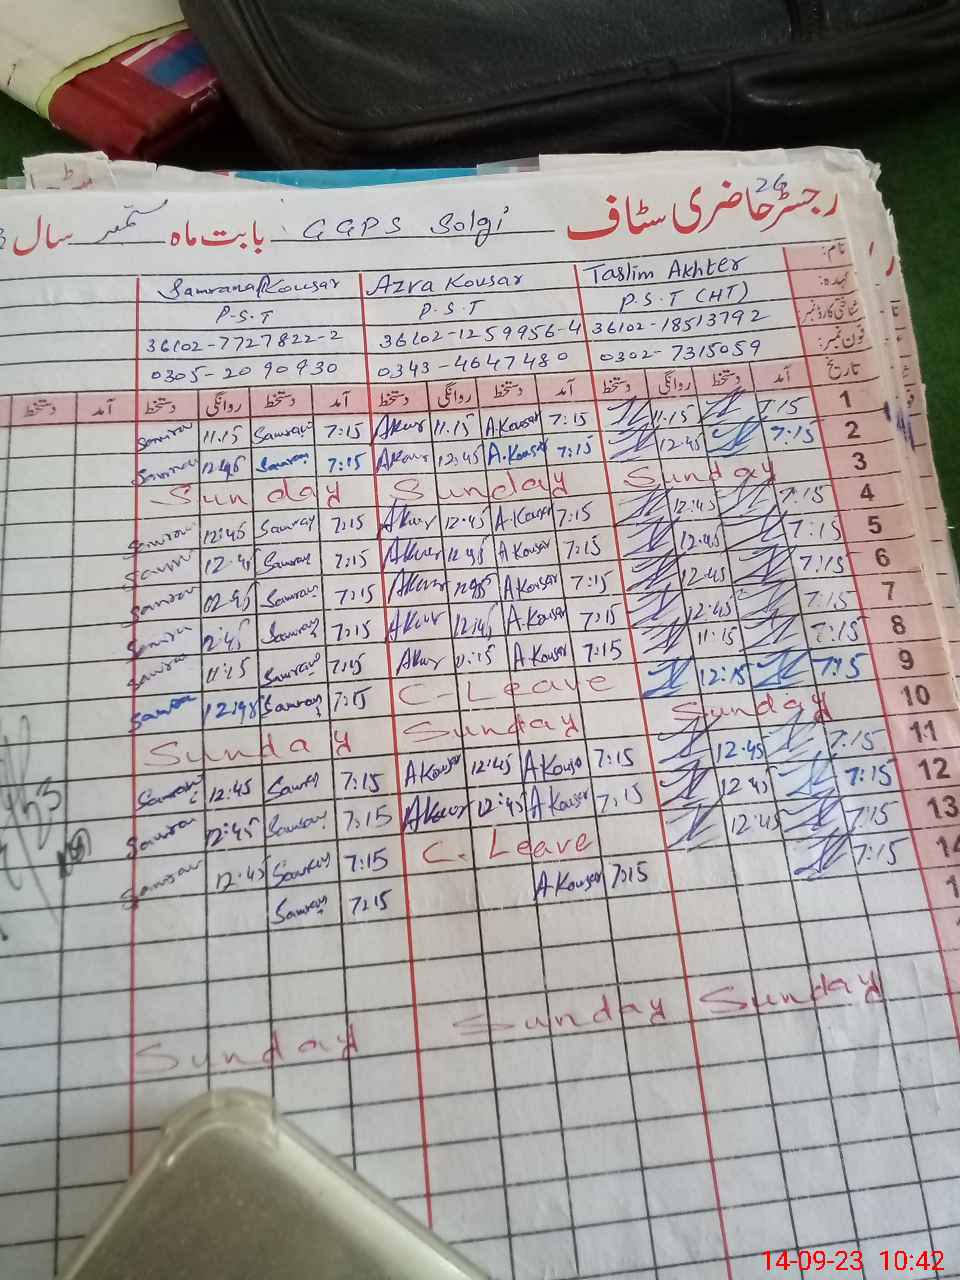 رجسٹر حاضری سٹاف 26
بابت ماہ GGPS Solgi ستمبر سال
نام: Taslim Akhter Azra Kousar Samrana Kousar
عہدہ: P.S.T (HT) P.S.T P.S.T
شناختی کارڈ نمبر: 36102-18513792 36102-1259956-4 36102-7727822-2
فون نمبر: 0302-7315059 0343-4647480 0305-2090930
تاریخ آمد دستخط روانگی دستخط آمد دستخط روانگی دستخط آمد دستخط روانگی دستخط آمد دستخط
1 7:15 11.15 7:15 A.Kousar 11.15 Akour 7:15 11.15
2 7:15 12.45 7:15 A.Kousar 12:45 Akour 7:15 12.45
3 Sunday Sunday Sunday
4 7:15 12:45 7:15 A.Kousar 12.45 Akour 7:15 12.45
5 7:15 12.45 7:15 A Kousar 12.45 Akour 7:15 12.45
6 7:15 12.45 7:15 A Kousar 12.45 Akour 7:15 12.45
7 7:15 12.45 7:15 A.Kousar 12.45 Akour 7:15 2.45
8 7:15 11:15 7:15 A.Kousar 11.15 Akour 7:15 11:15
9 7:15 12:15 C-Leave 7:15 12.45
10 Sunday Sunday Sunday
11 7:15 12.45 7:15 A Kousar 12.45 A Kousar 7:15 12.45
12 7:15 12.45 7:15 A Kousar 12.45 Akour 7:15 12:45
13 7:15 12:45 C. Leave 7:15 12.45
14 7:15 7:15 A Kousar 7:15
Sunday Sunday Sunday
14-09-23 10:42